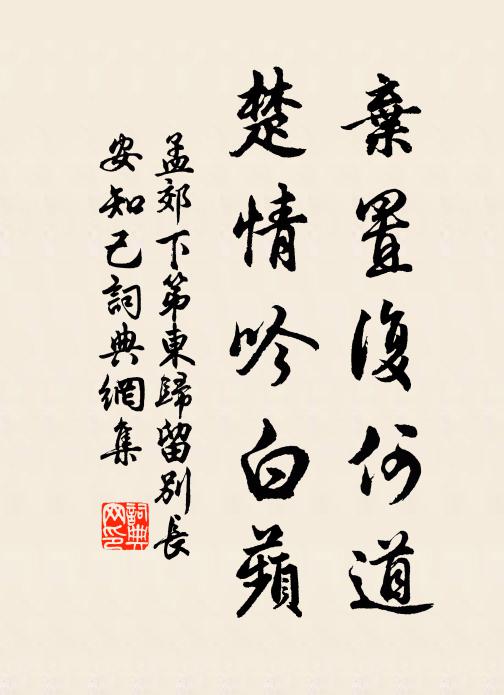 棄置復何道
楚情吟白蘋
孟郊下第東歸留別長
安知己詞典網集
詞典
网印